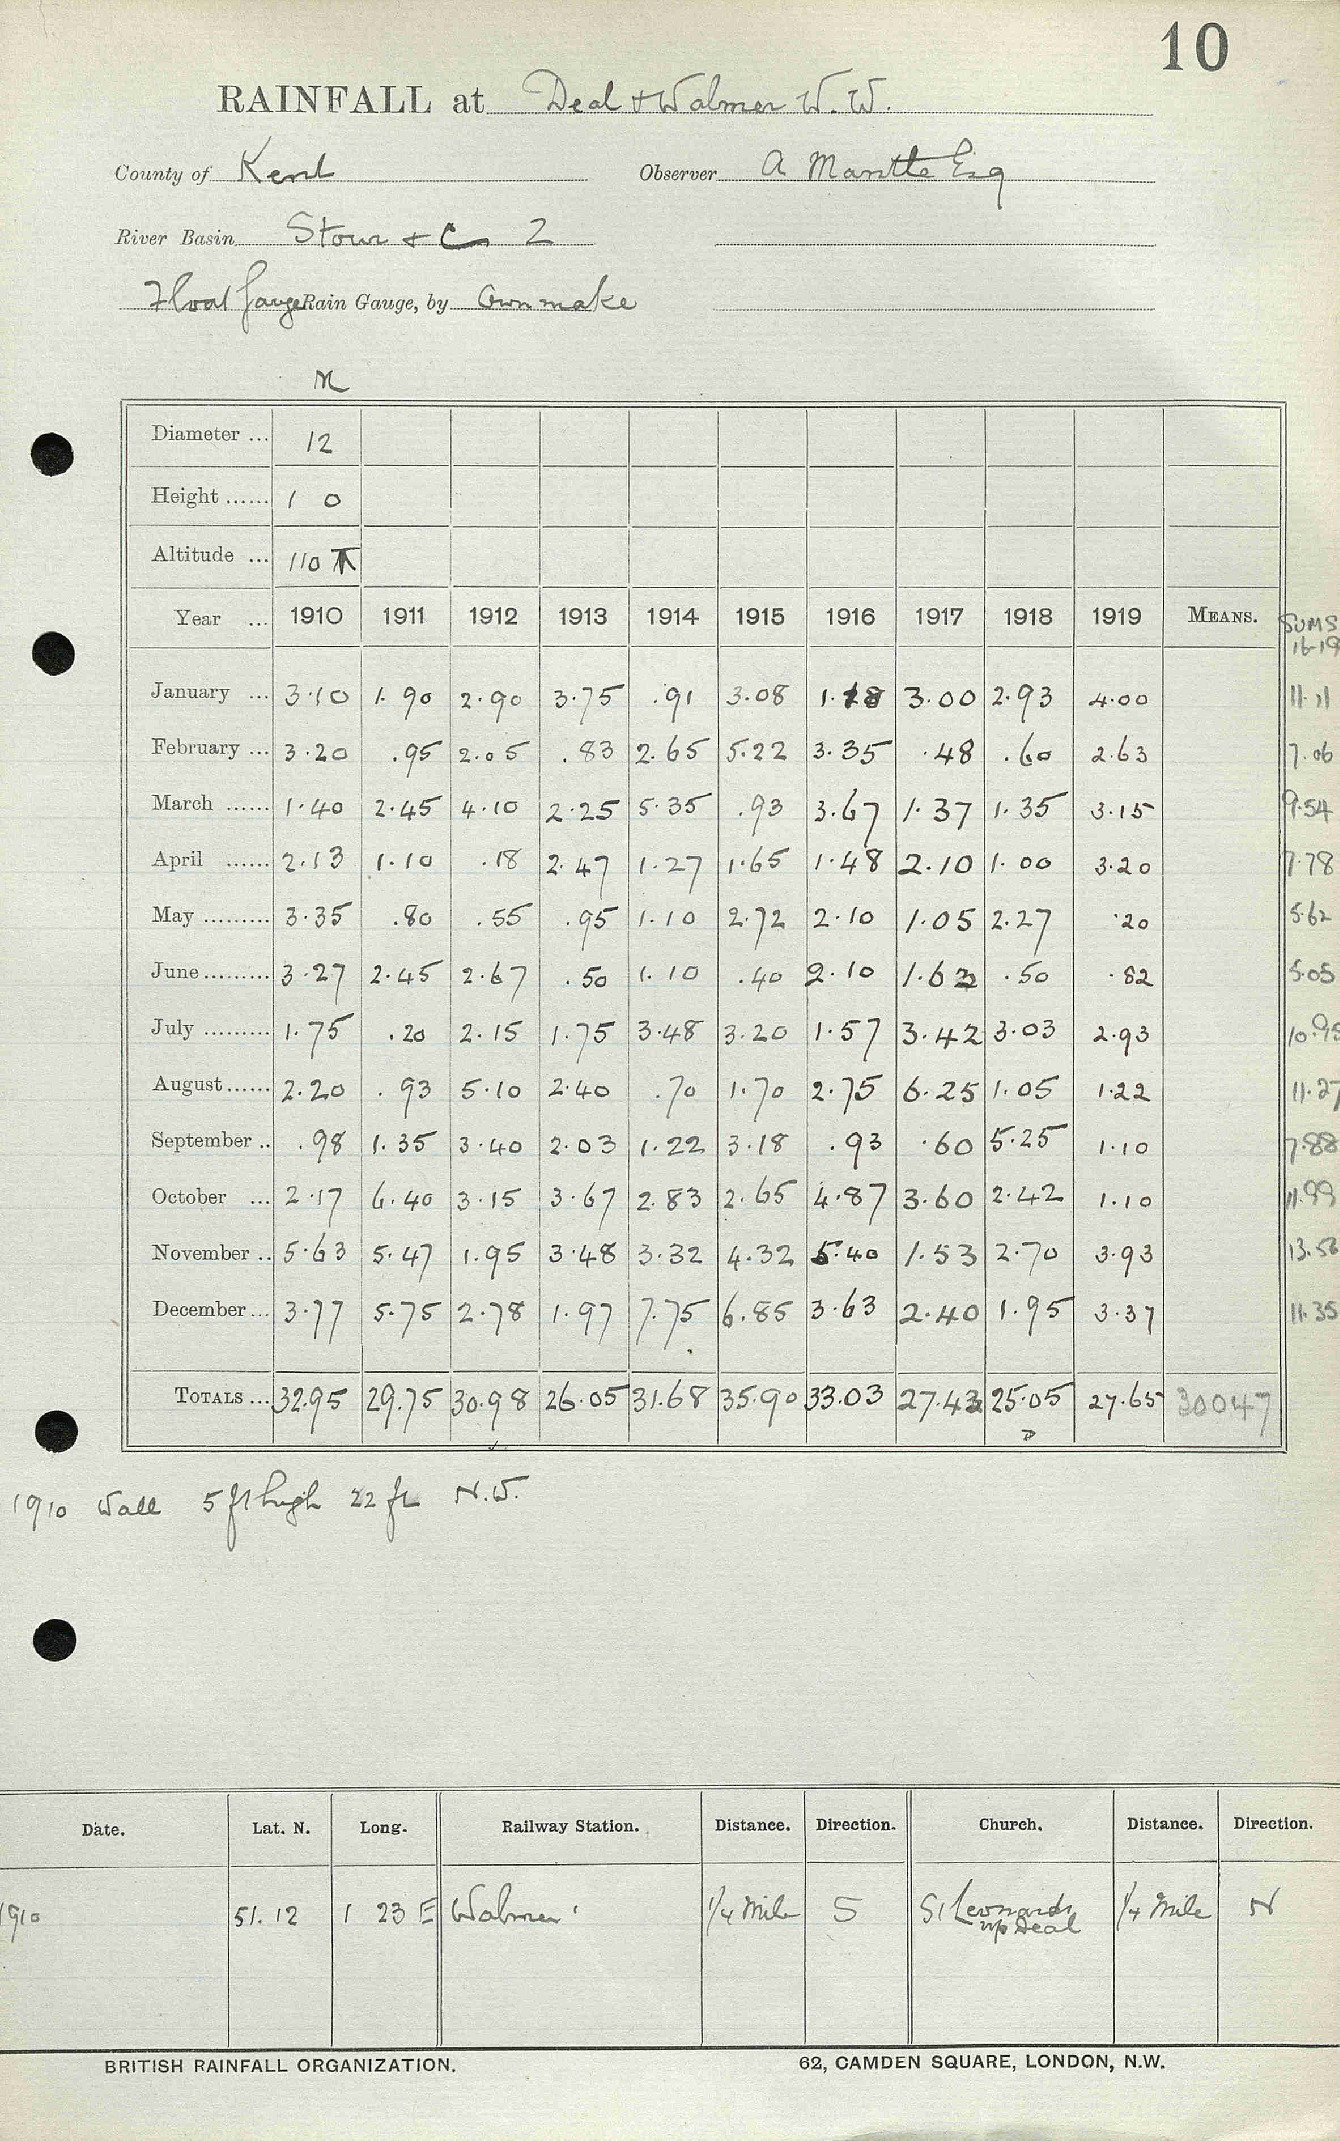 10
RAINFALL at Deal & Walmer W. W.
County of Kent Observer A Mantle Esq
River Basin Stour &c 2
Float gauge Rain Gauge, by Own make
M
Diameter ... 12
Height ...... 1 0
Altitude ... 110
Year ... 1910 1911 1912 1913 1914 1915 1916 1917 1918 1919 MEANS. SUMS
16-19
January ... 3.10 1.90 2.90 3.75 .91 3.08 1.18 3.00 2.93 4.00 11.11
February ... 3.20 .95 2.05 .83 2.65 5.22 3.35 .48 .60 2.63 7.06
March ...... 1.40 2.45 4.10 2.25 5.35 .93 3.67 1.37 1.35 3.15 9.54
April ...... 2.13 1.10 .18 2.47 1.27 1.65 1.48 2.10 1.00 3.20 7.78
May ......... 3.35 .80 .55 .95 1.10 2.72 2.10 1.05 2.27 .20 5.62
June ......... 3.27 2.45 2.67 .50 1.10 .40 2.10 1.63 .50 .82 5.05
July ......... 1.75 .20 2.15 1.75 3.48 3.20 1.57 3.42 3.03 2.93 10.95
August ...... 2.20 .93 5.10 2.40 .70 1.70 2.75 6.25 1.05 1.22 11.27
September .. .98 1.35 3.40 2.03 1.22 3.18 .93 .60 5.25 1.10 7.88
October ... 2.17 6.40 3.15 3.67 2.83 2.65 4.87 3.60 2.42 1.10 11.99
November .. 5.63 5.47 1.95 3.48 3.32 4.32 5.40 1.53 2.70 3.93 13.56
December ... 3.77 5.75 2.78 1.97 7.75 6.85 3.63 2.40 1.95 3.37 11.35
TOTALS ... 32.95 29.75 30.98 26.05 31.68 35.90 33.03 27.43 25.05 27.65 30047
D
1910 Wall 5 ft high 22 ft N.W.
Date. Lat. N. Long. Railway Station. Distance. Direction. Church. Distance. Direction.
1910 51.12 1 23 E Walmer 1/4 Mile S St Leonards 1/4 Mile N
up Deal
BRITISH RAINFALL ORGANIZATION. 62, CAMDEN SQUARE, LONDON, N.W.